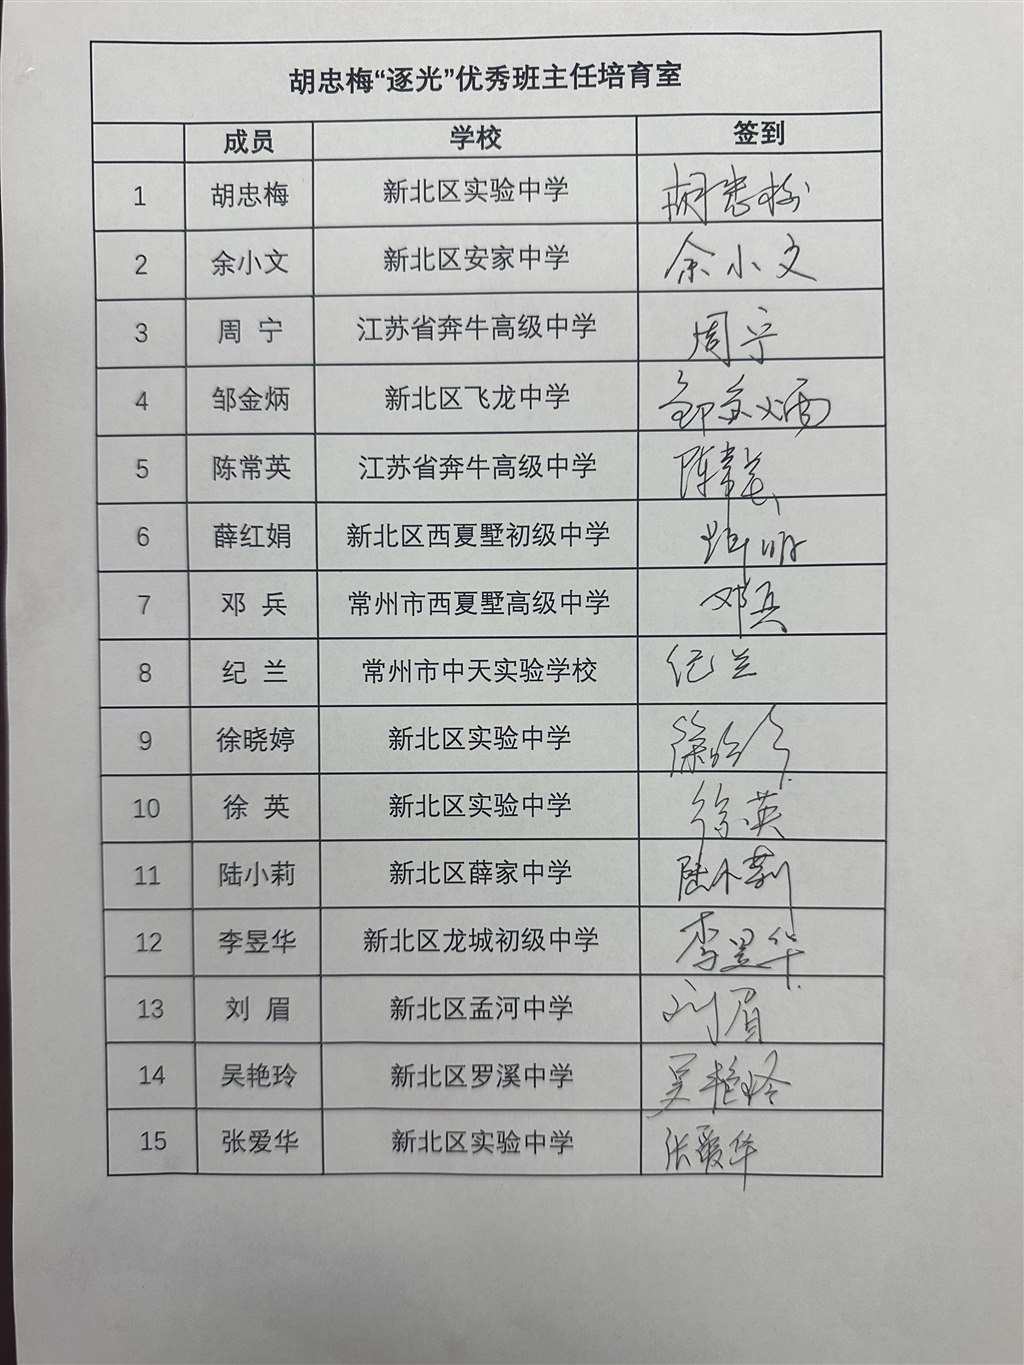 胡忠梅“逐光”优秀班主任培育室
成员 学校 签到
1 胡忠梅 新北区实验中学 胡忠梅
2 余小文 新北区安家中学 余小文
3 周 宁 江苏省奔牛高级中学 周宁
4 邹金炳 新北区飞龙中学 邹金炳
5 陈常英 江苏省奔牛高级中学 陈常英
6 薛红娟 新北区西夏墅初级中学
7 邓 兵 常州市西夏墅高级中学 邓兵
8 纪 兰 常州市中天实验学校 纪兰
9 徐晓婷 新北区实验中学
10 徐 英 新北区实验中学 徐英
11 陆小莉 新北区薛家中学 陆小莉
12 李昱华 新北区龙城初级中学 李昱华
13 刘 眉 新北区孟河中学 刘眉
14 吴艳玲 新北区罗溪中学 吴艳玲
15 张爱华 新北区实验中学 张爱华